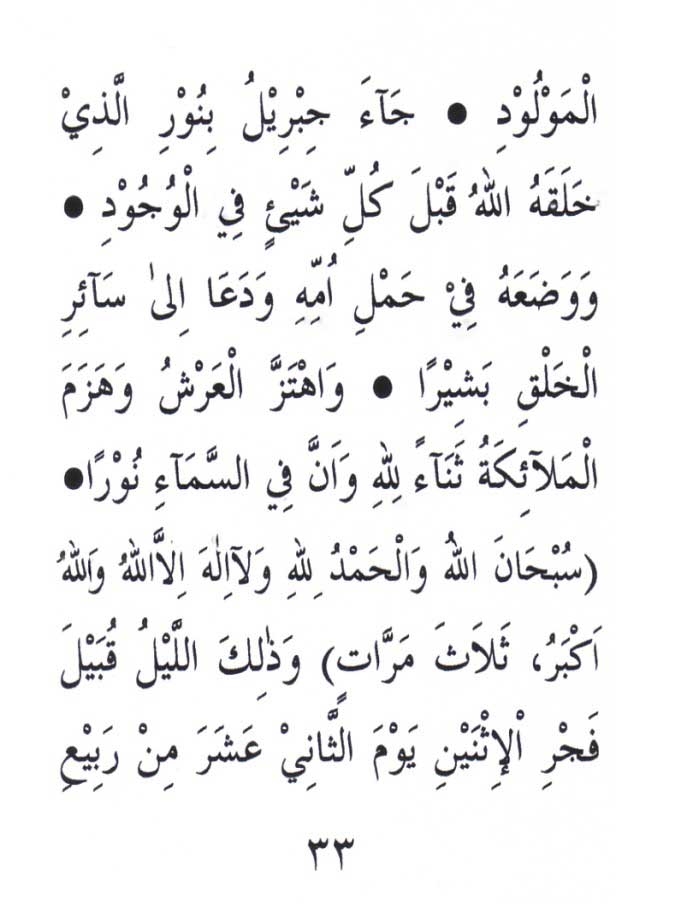 الْمَوْلُوْدِ ● جَآءَ جِبْرِيْلُ بِنُوْرِ الَّذِيْ
خَلَقَهُ اللهُ قَبْلَ كُلِّ شَيْئٍ فِي الْوُجُوْدِ ●
وَوَضَعَهُ فِيْ حَمْلِ اُمِّهِ وَدَعَا اِلىٰ سَآئِرِ
الْخَلْقِ بَشِيْرًا ● وَاهْتَزَّ الْعَرْشُ وَهَزَمَ
الْمَلآئِكَةُ ثَنَآءً لِلّٰهِ وَاَنَّ فِي السَّمَآءِ نُوْرًا●
(سُبْحَانَ اللهُ وَالْحَمْدُ لِلّٰهِ وَلآاِلٰهَ اِلاَّاللهُ وَاللهُ
اَكْبَرُ، ثَلاَثَ مَرَّاتٍ) وَذٰلِكَ اللَّيْلُ قُبَيْلَ
فَجْرِ اْلإِثْنَيْنِ يَوْمَ الثَّانِيْ عَشَرَ مِنْ رَبِيْعِ
٣٣